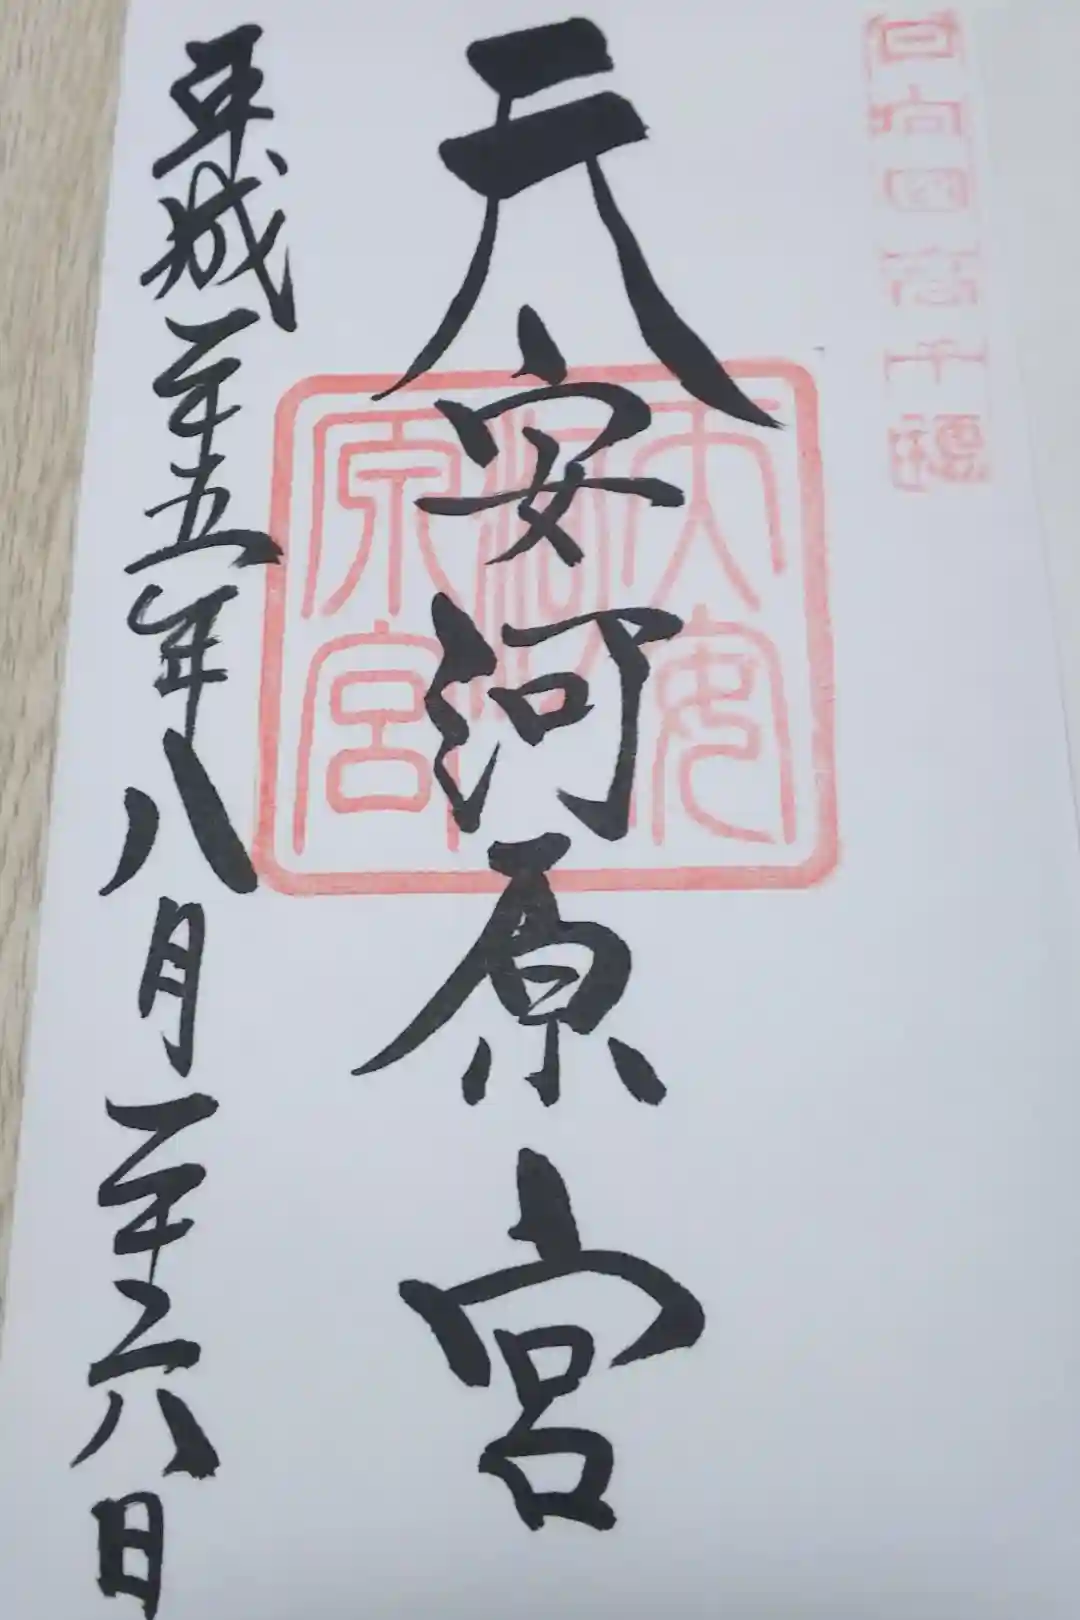 日向国高千穂
天安河原宮
天安河原宮
平成二十五年八月二十六日